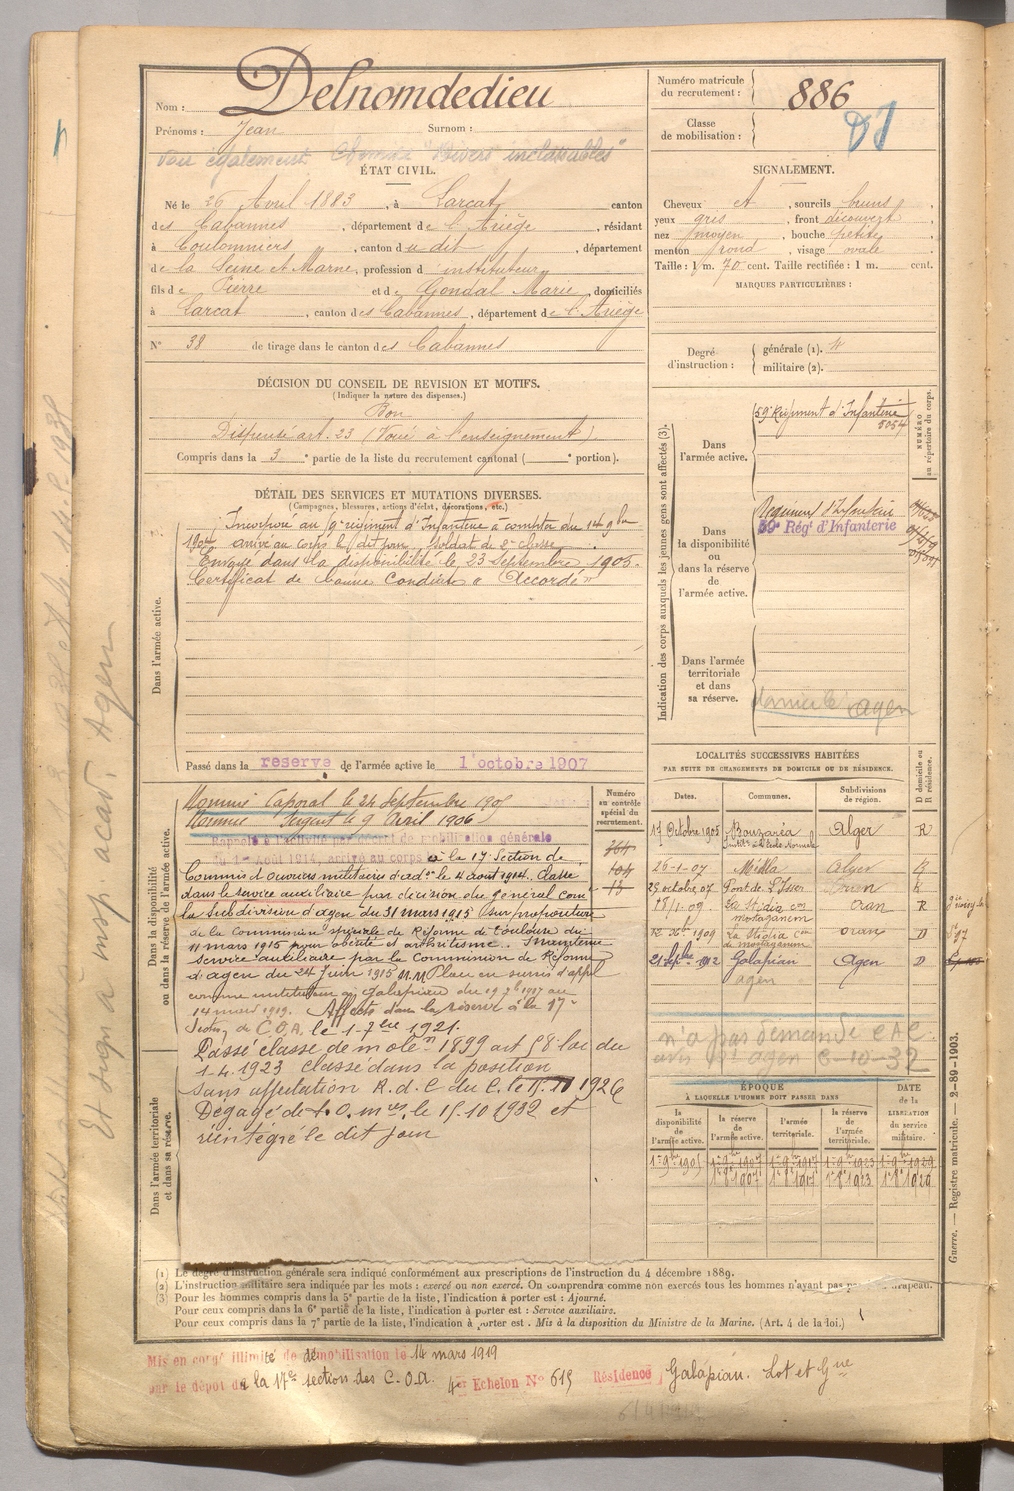 Nom : Delnomdedieu
Prénoms : Jean Surnom :
Voir également Chemise "Divers inclassables"
ÉTAT CIVIL.
Né le 26 Avril 1883, à Larcat, canton
des Cabannes, département de l'Ariège, résidant
à Coulommiers, canton du dit, département
de la Seine et Marne, profession d'instituteur
fils de Pierre et de Gondal Marie, domiciliés
à Larcat, canton des Cabannes, département de l'Ariège
N° 38 de tirage dans le canton des Cabannes
DÉCISION DU CONSEIL DE REVISION ET MOTIFS.
(Indiquer la nature des dispenses.)
Bon
Dispensé art. 23 (Voué à l'enseignement)
Compris dans la 3e partie de la liste du recrutement cantonal ( e portion).
DÉTAIL DES SERVICES ET MUTATIONS DIVERSES.
(Campagnes, blessures, actions d'éclat, décorations, etc.)
Dans l'armée active.
Incorporé au 9e régiment d'Infanterie à compter du 14 9bre
1904 arrivé au corps le dit jour, Soldat de 2e classe.
Envoyé dans la disponibilité le 23 Septembre 1905.
Certificat de bonne Conduite "Accordé"
Passé dans la réserve de l'armée active le 1 octobre 1907
Dans la disponibilité ou dans la réserve de l'armée active.
Nommé Caporal le 24 Septembre 1905
Nommé Sergent le 9 Avril 1906
Rappelé à l'activité par décret de mobilisation générale
du 1er Août 1914, arrivé au corps à la 17 Section de
Commis d'ouvriers militaires d'adon le 4 août 1914. Classé
dans le service auxiliaire par décision du général com
la Subdivision d'agen du 31 mars 1915 sur proposition
de la Commission spéciale de Réforme de Toulouse du
11 mars 1915 pour obésité et arthritisme. Maintenu
service auxiliaire par la Commission de Réforme
d'agen du 24 Juin 1915 Placé en sursis d'appel
comme instituteur à Galapian du 19 1917 au
14 mars 1919. Affecté dans la réserve à la 17e
Section de C.O.A. le 1-7bre 1921.
Dans l'armée territoriale et dans sa réserve.
Passé classe de mob 1899 art 58 loi du
1-4-1923 classé dans la position
sans affectation R. d. C du C. le 1926
Dégagé de t. O. mres le 15.10 1932 et
réintégré le dit jour
Numéro matricule du recrutement : 886
Classe de mobilisation :
SIGNALEMENT.
Cheveux et, sourcils bruns,
yeux gris, front découvert,
nez moyen, bouche petite,
menton rond, visage ovale.
Taille : 1 m. 70 cent. Taille rectifiée : 1 m. cent.
MARQUES PARTICULIÈRES :
Degré d'instruction : générale (1).
militaire (2).
Indication des corps auxquels les jeunes gens sont affectés (3).
NUMÉRO au répertoire du corps.
Dans l'armée active. 59e Régiment d'Infanterie 5054
Dans la disponibilité ou dans la réserve de l'armée active. Régiment d'Infanterie
59e Régt d'Infanterie
Dans l'armée territoriale et dans sa réserve.
domicile agen
LOCALITÉS SUCCESSIVES HABITÉES
PAR SUITE DE CHANGEMENTS DE DOMICILE OU DE RÉSIDENCE.
Numéro au contrôle spécial du recrutement.
Dates. Communes. Subdivisions de région. D domicile ou R résidence.
17 Octobre 1905 Bouzaréa Alger R
26-1-07 Alger R
29 octobre 07 Pont de l'Isser Oran R
18/1-09 La Stidia cn mostaganem Oran R
1909 La Stidia cn de mostaganem Oran D
21 Septbre 1912 Galapian Agen D
agen
n'a pas demandé CAC
avis Bt agen 6-10-32
ÉPOQUE
À LAQUELLE L'HOMME DOIT PASSER DANS
DATE de la LIBÉRATION du service militaire.
la disponibilité de l'armée active. la réserve de l'armée active. l'armée territoriale. la réserve de l'armée territoriale.
1-9bre 1905 1-9bre 1907 1-9bre 1917 1-9bre 1923 1-9bre 1929
1-8bre 1907 1-8bre 1917 1-8bre 1923 1-8bre 1929
Guerre. — Registre matricule. — 2-89-1903.
(1) Le degré d'instruction générale sera indiqué conformément aux prescriptions de l'instruction du 4 décembre 1889.
(2) L'instruction militaire sera indiquée par les mots : exercé ou non exercé. On comprendra comme non exercés tous les hommes n'ayant pas drapeau.
(3) Pour les hommes compris dans la 5e partie de la liste, l'indication à porter est : Ajourné.
Pour ceux compris dans la 6e partie de la liste, l'indication à porter est : Service auxiliaire.
Pour ceux compris dans la 7e partie de la liste, l'indication à porter est : Mis à la disposition du Ministre de la Marine. (Art. 4 de la loi.)
Mis en congé illimité de démobilisation le 14 mars 1919
par le dépôt de la 17e section des C.O.A. 4er Echelon N° 615 Résidence Galapian. Lot et Gne
insp. acad. Agen